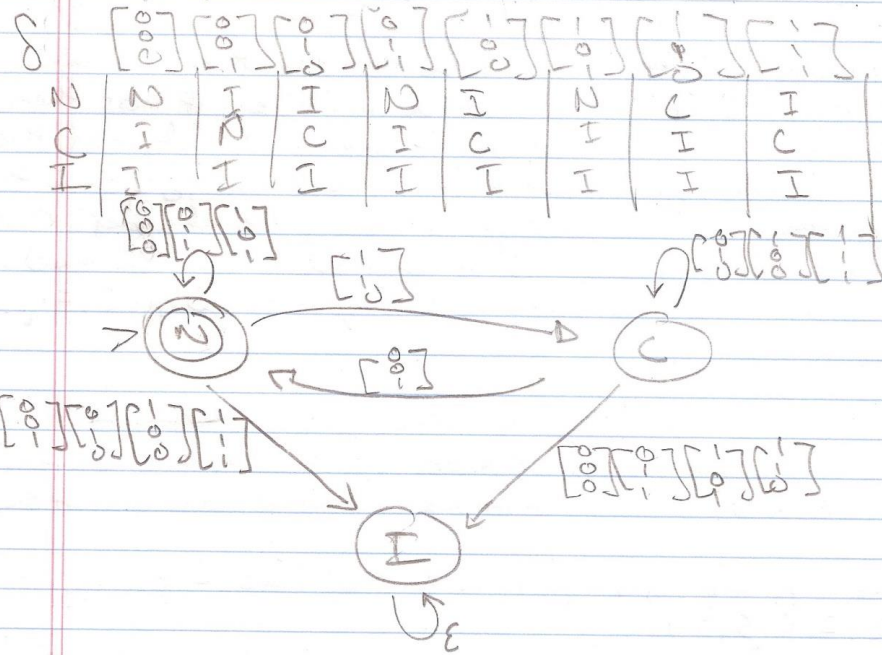 δ [0 0 0] [0 0 1] [0 1 0] [0 1 1] [1 0 0] [1 0 1] [1 1 0] [1 1 1]
N N I I N I N C I
C I N C I C I I C
I I I I I I I I I
[0 0 0] [0 1 1] [1 0 1]
[1 1 0]
[0 1 0] [1 0 0] [1 1 1]
> N
C
[0 0 1]
[0 0 1] [0 1 0] [1 0 0] [1 1 1]
[0 0 0] [0 1 1] [1 0 1] [1 1 0]
I
ε